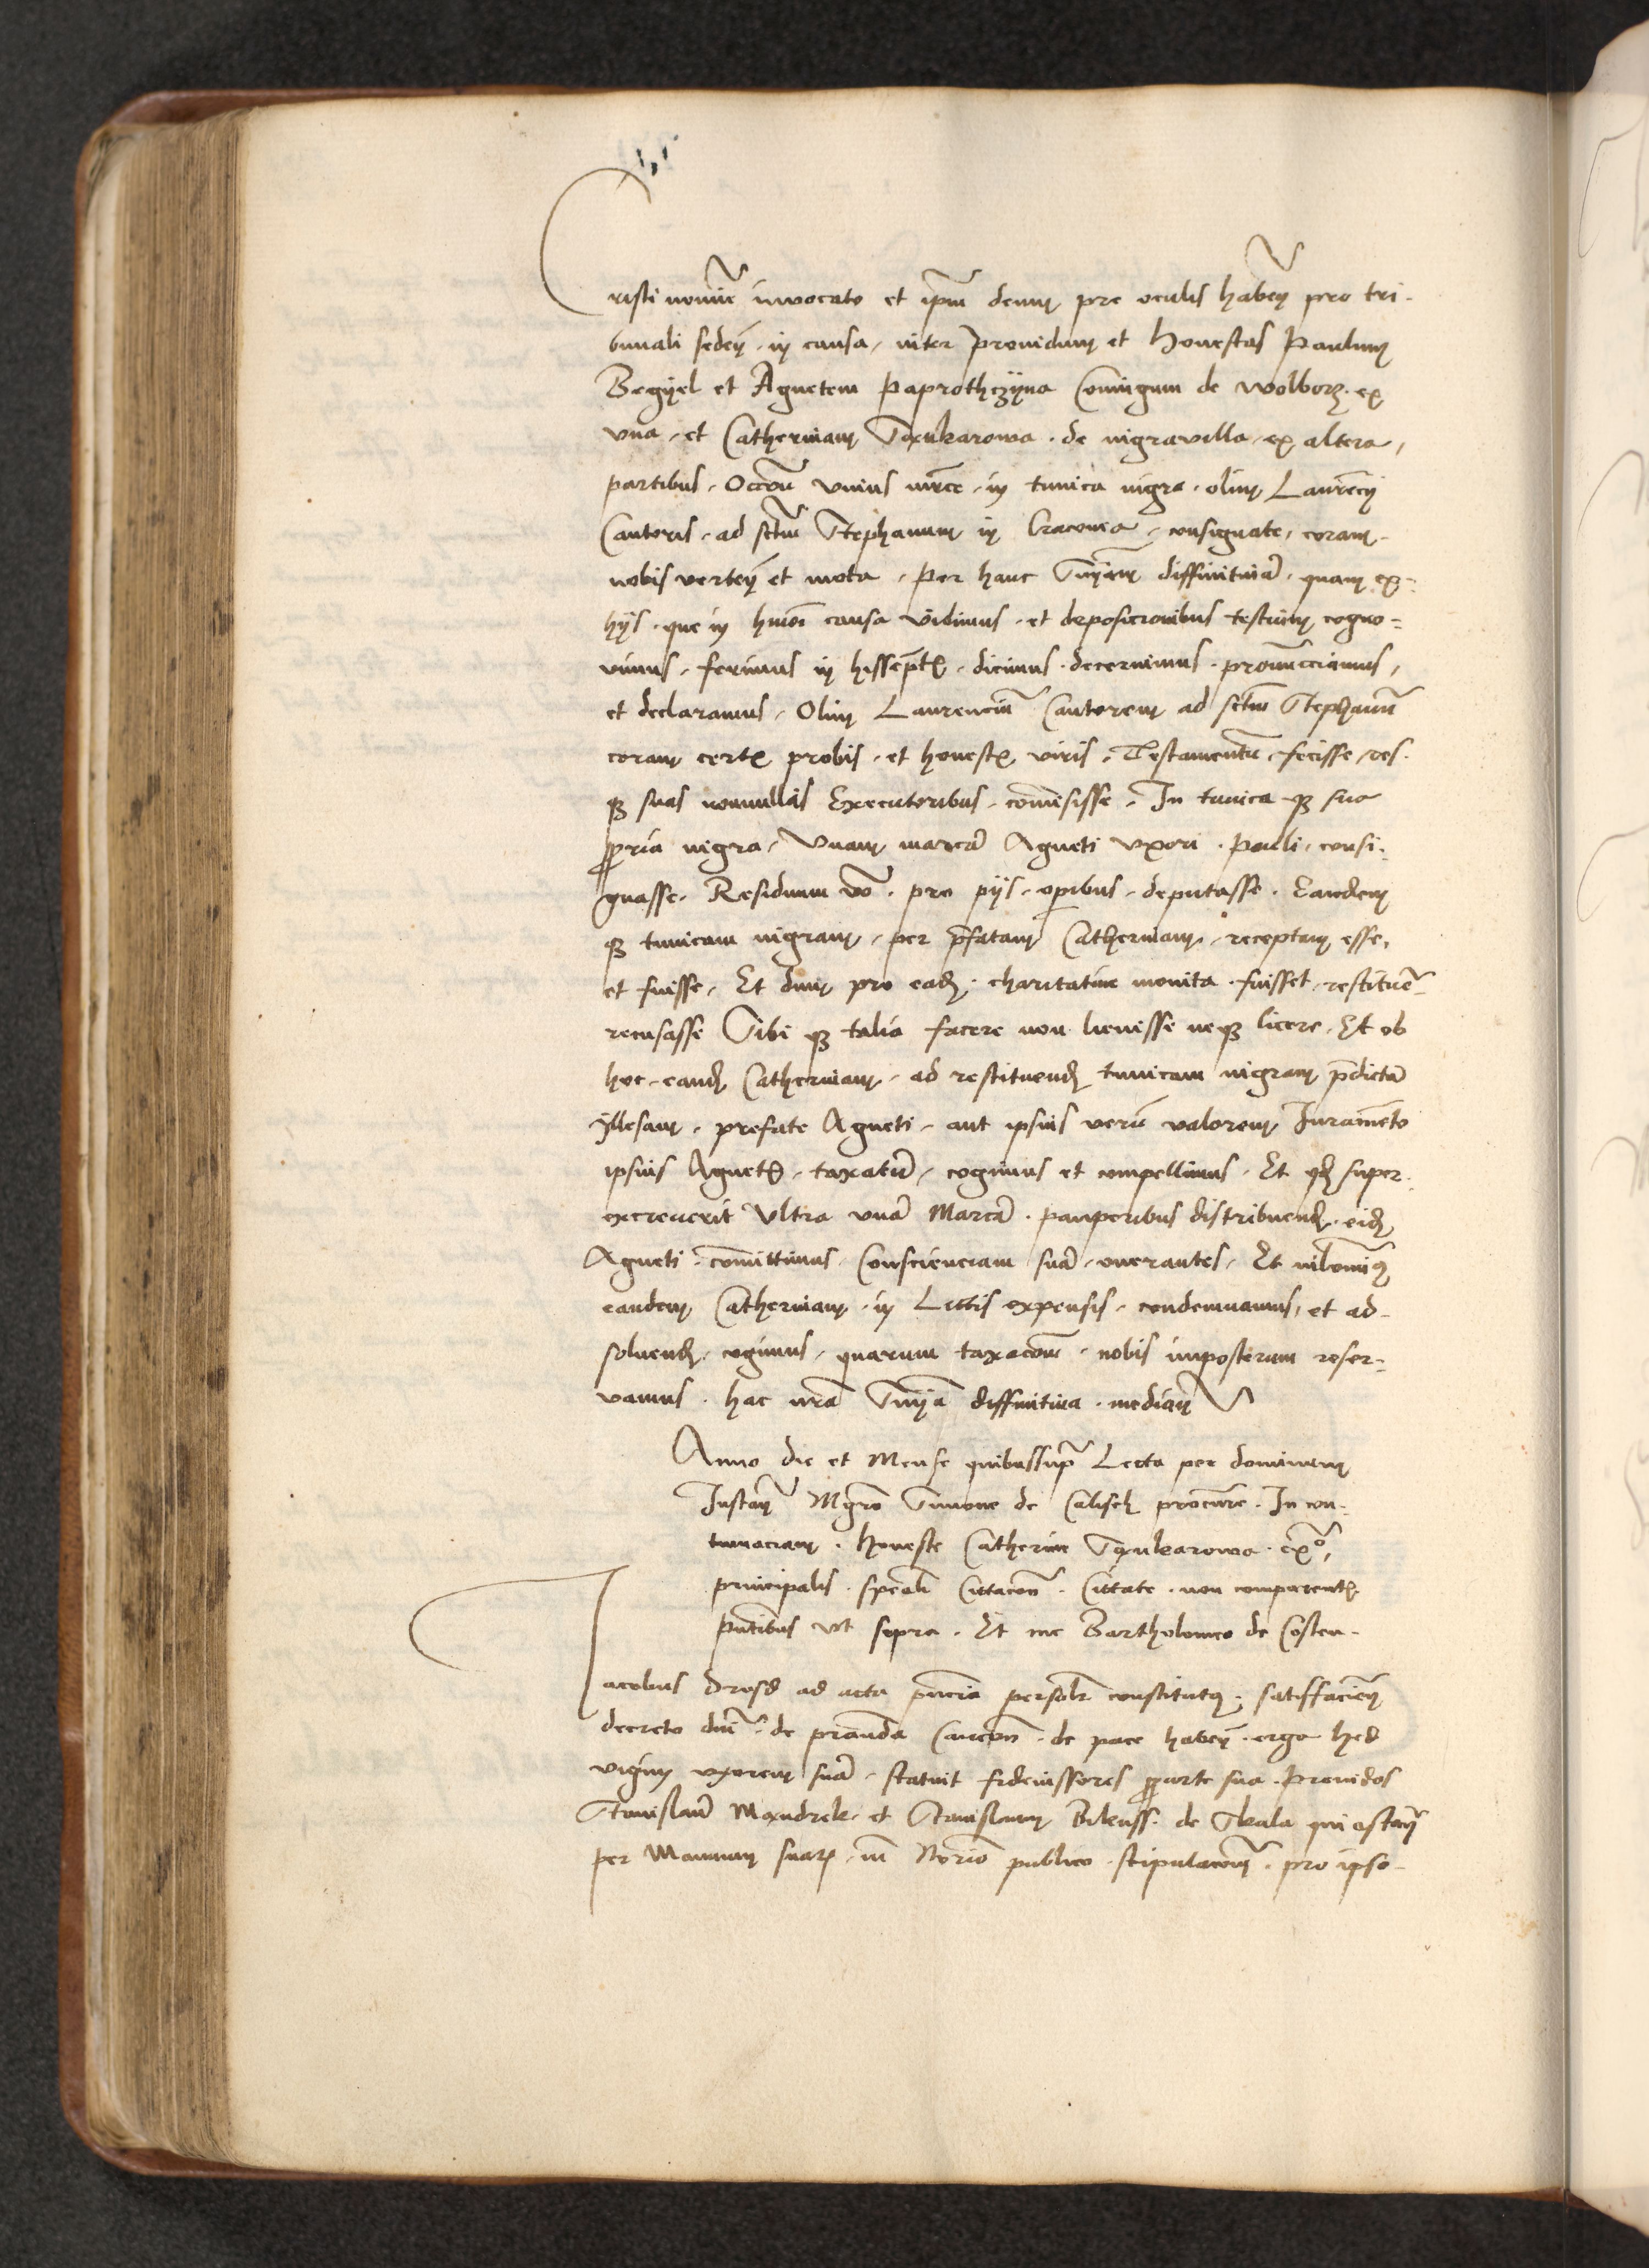 Cristi nomine invocato et ipm deum pre oculis habeñ pro tri-
bunali sedeñ in causa inter Providum et Honestas Paulum
Begyel et Agnetem Paprothczyna Coniugum de Wolborz ex
vna et Catherinam de nigravilla ex altera
partibus Occoē vnius mrce in tunica nigra olim Laurēcij
Cantoris ad sctūm Stephanum in Cracovia consignate coram
nobis verteñ et mota Per hanc Sniam diffinitivā quam ex
hijs que in hmōi causa vidimus et deposicionibus testium cogno=
vimus ferimus in hijs scriptis dicimus decernimus pronūcciamus
et declaramus Olim Laurenciū Cantorem ad sctūm Stephanū
coram certis probis et honestis viris Testamentū fecisse res
q3 suas nonnullas Executoribus comisisse In tunica q3 sua
propria nigra Vnam marcā Agneti vxori Pauli consi-
gnasse Residuum vō pro pijs operibus deputasse Eandem
q3 tunicam nigram per pfatam Catherinam receptam esse
et fuisse Et dum pro eadē charitative monita fuisset restituē
recusasse Sibi q3 talia facere non licuisse neq3 licere Et ob
hoc eandē Catherinam ad restituendē tunicam nigram pdictā
illesam prefate Agneti aut ipsius verū valorem Juramēto
ipsius Agnetis taxatū cogimus et compellimus Et qd super
excreverit Vltra vnā Marcā pauperibus distribuendē eidē
Agneti comittimus Conscienciam suā onerantes Et nihlominq
eandem Catherinam in Lictis expensis condemnamus et ad
solvendē cogimus quarum taxacōem nobis imposterum reser-
vamus hac nrā Snīa diffinitiva mediāñ
Anno die et Mense quibus supra Lecta per dominum
Instañ Mgrō Simone de Calisch procurē In con-
tumaciam Honeste Catherine ex
principalis specāli Cittacōē Cittate non comparentis
pntibus vt supra Et me Bartholomeo de Costen
Jacobus ad acta pncia personlr constitutq satisfacieñ
decreto dni de prestanda Caucōē de pace habeñ erga Hed
vigim vxorem suā statuit fideiussores pro parte sua Providos
Stanislaū Mandrek et Stanislaum de Skala qui astañ
per Manuum suarz in Notario publico stipulacoēm pro ipso